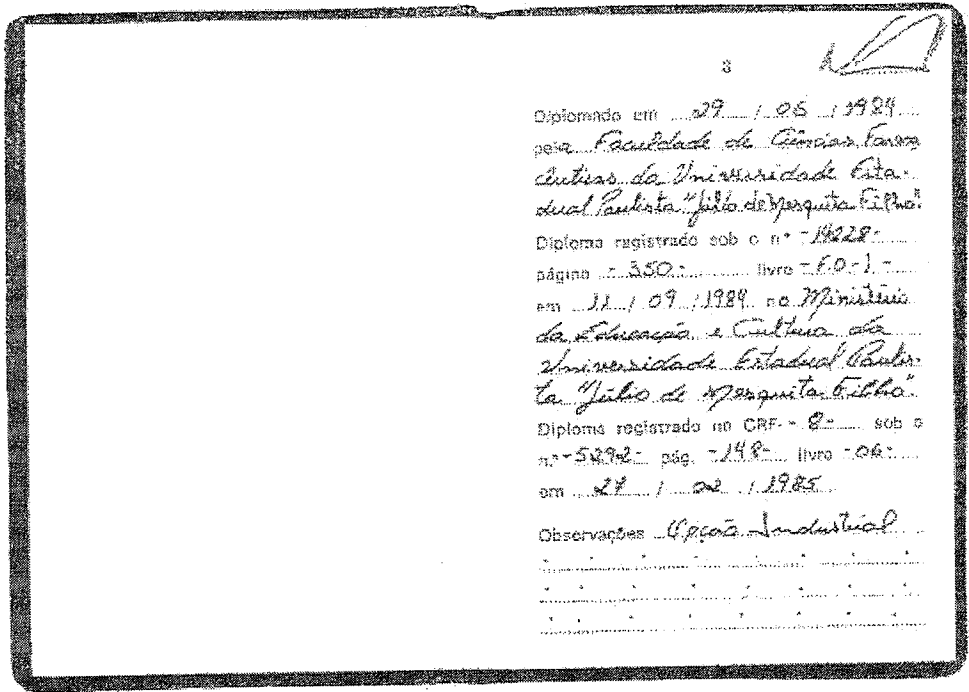 3
Diplomado em 29 / 06 / 1984
pela Faculdade de Ciências Farma
cêuticas da Universidade Esta-
dual Paulista "Júlio de Mesquita Filho".
Diploma registrado sob o n.º -14028-
página - 350 - livro - F.D - 1 -
em 11 / 09 / 1984 no Ministério
da Educação e Cultura da
Universidade Estadual Paulis-
ta "Júlio de Mesquita Filho".
Diploma registrado no CRF- - 8 - sob o
n.º -5292- pág. -148- livro -06-
em 27 / 02 / 1985
Observações Opção Industrial